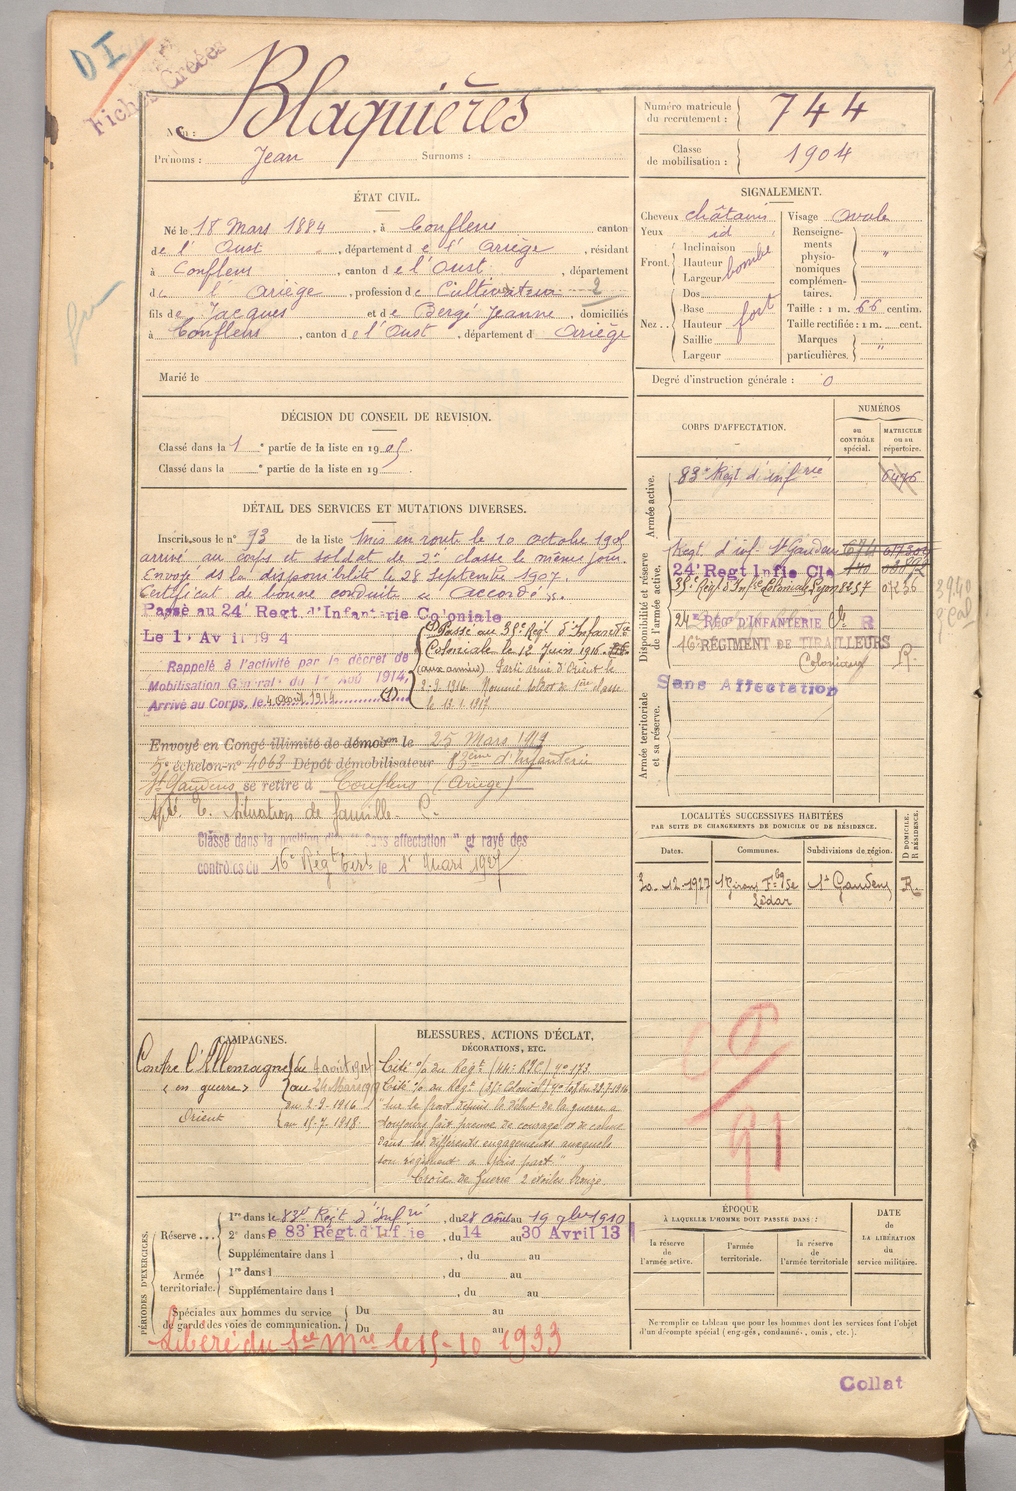 D I
Fiches Créées
Nom : Blaquières
Prénoms : Jean Surnoms :
Numéro matricule du recrutement : 744
Classe de mobilisation : 1904
ÉTAT CIVIL.
Né le 18 Mars 1884, à Couflens canton
de l'Oust, département de l'Ariège, résidant
à Couflens, canton de l'Oust, département
de l'Ariège, profession de Cultivateur 2
fils de Jacques et de Bergé Jeanne, domiciliés
à Couflens, canton de l'Oust, département d Ariège
Marié le
SIGNALEMENT.
Cheveux châtains Visage ovale
Yeux id
Front. Inclinaison
Hauteur
Largeur bombé
Nez.. Dos
Base
Hauteur fort
Saillie
Largeur
Renseignements physionomiques complémentaires. "
Taille : 1 m. 66 centim.
Taille rectifiée : 1 m. cent.
Marques particulières. "
Degré d'instruction générale : 0
DÉCISION DU CONSEIL DE REVISION.
Classé dans la 1e partie de la liste en 1905.
Classé dans la e partie de la liste en 19
DÉTAIL DES SERVICES ET MUTATIONS DIVERSES.
Inscrit sous le n° 73 de la liste Mis en route le 10 octobre 1905
arrivé au corps et soldat de 2e classe le même jour.
Envoyé ds la disponibilité le 28 Septembre 1907.
Certificat de bonne conduite "Accordé".
Passé au 24e Regt. d'Infanterie Coloniale
Le 1 Avril 1914
Rappelé à l'activité par le décret de
Mobilisation Générale du 1er Aoû 1914,
Arrivé au Corps, le 4 août 1914 (1)
(1) Passé au 35e Régt d'Infanterie
Coloniale le 12 Juin 1916.
(aux armées) Parti armée d'Orient le
2-9-1916 Nommé soldat de 1ère classe
le 13.1.1917
Envoyé en Congé illimité de démobon le 25 Mars 1919
5e échelon n° 4063 Dépôt démobilisateur 83ème d'Infanterie
St Gaudens se retire à Couflens (Ariège)
Situation de famille
Classé dans la position dite "Sans affectation" et rayé des
contrôles du 16e Régt terr le 1er Mars 1927
CORPS D'AFFECTATION.
NUMÉROS
au CONTRÔLE spécial.
MATRICULE ou au répertoire.
Armée active.
83e Régt d'infrie 6476
Disponibilité et réserve de l'armée active.
Régt. d'inf. St Gaudens 674
24e Regt Infie Cle
35e Régt d'Infie Coloniale Lyon 8257 07236
24e RÉGt D'INFANTERIE Cle R
16e RÉGIMENT DE TIRAILLEURS
Coloniaux R.
Sans Affectation
Armée territoriale et sa réserve.
LOCALITÉS SUCCESSIVES HABITÉES
PAR SUITE DE CHANGEMENTS DE DOMICILE OU DE RÉSIDENCE.
Dates. Communes. Subdivisions de région. D DOMICILE. R RÉSIDENCE.
30-12-1927 St Girons Fbg de St Gaudens R.
Lédar
CAMPAGNES.
Contre l'Allemagne du 4 août 1914
"en guerre" au 24 Mars 1919
Orient du 2-9-1916
au 18-7-1918
BLESSURES, ACTIONS D'ÉCLAT,
DÉCORATIONS, ETC.
Cité o/ du Régt (44e RIC) n° 173.
Cité o/ du Régt (35e Colonial)
"sur le front depuis le début de la guerre a
toujours fait preuve de courage et de calme
dans les différents engagements auxquels
son régiment a pris part"
Croix de Guerre 2 étoiles bronze.
91
PÉRIODES D'EXERCICES.
Réserve... 1re dans le 83e Régt d'Infrie, du 28 août au 19 7bre 1910
2e dans le 83e Régt. d'Infie, du 14 au 30 Avril 13
Supplémentaire dans l , du au
Armée territoriale. 1re dans l , du au
Supplémentaire dans l , du au
Spéciales aux hommes du service de garde des voies de communication. Du au
Du au
Libéré du Sce Mre le 15-10 1933
ÉPOQUE
À LAQUELLE L'HOMME DOIT PASSER DANS :
la réserve de l'armée active.
l'armée territoriale.
la réserve de l'armée territoriale
DATE DE LA LIBÉRATION du service militaire.
Ne remplir ce tableau que pour les hommes dont les services font l'objet
d'un décompte spécial (engagés, condamnés, omis, etc.).
Collat